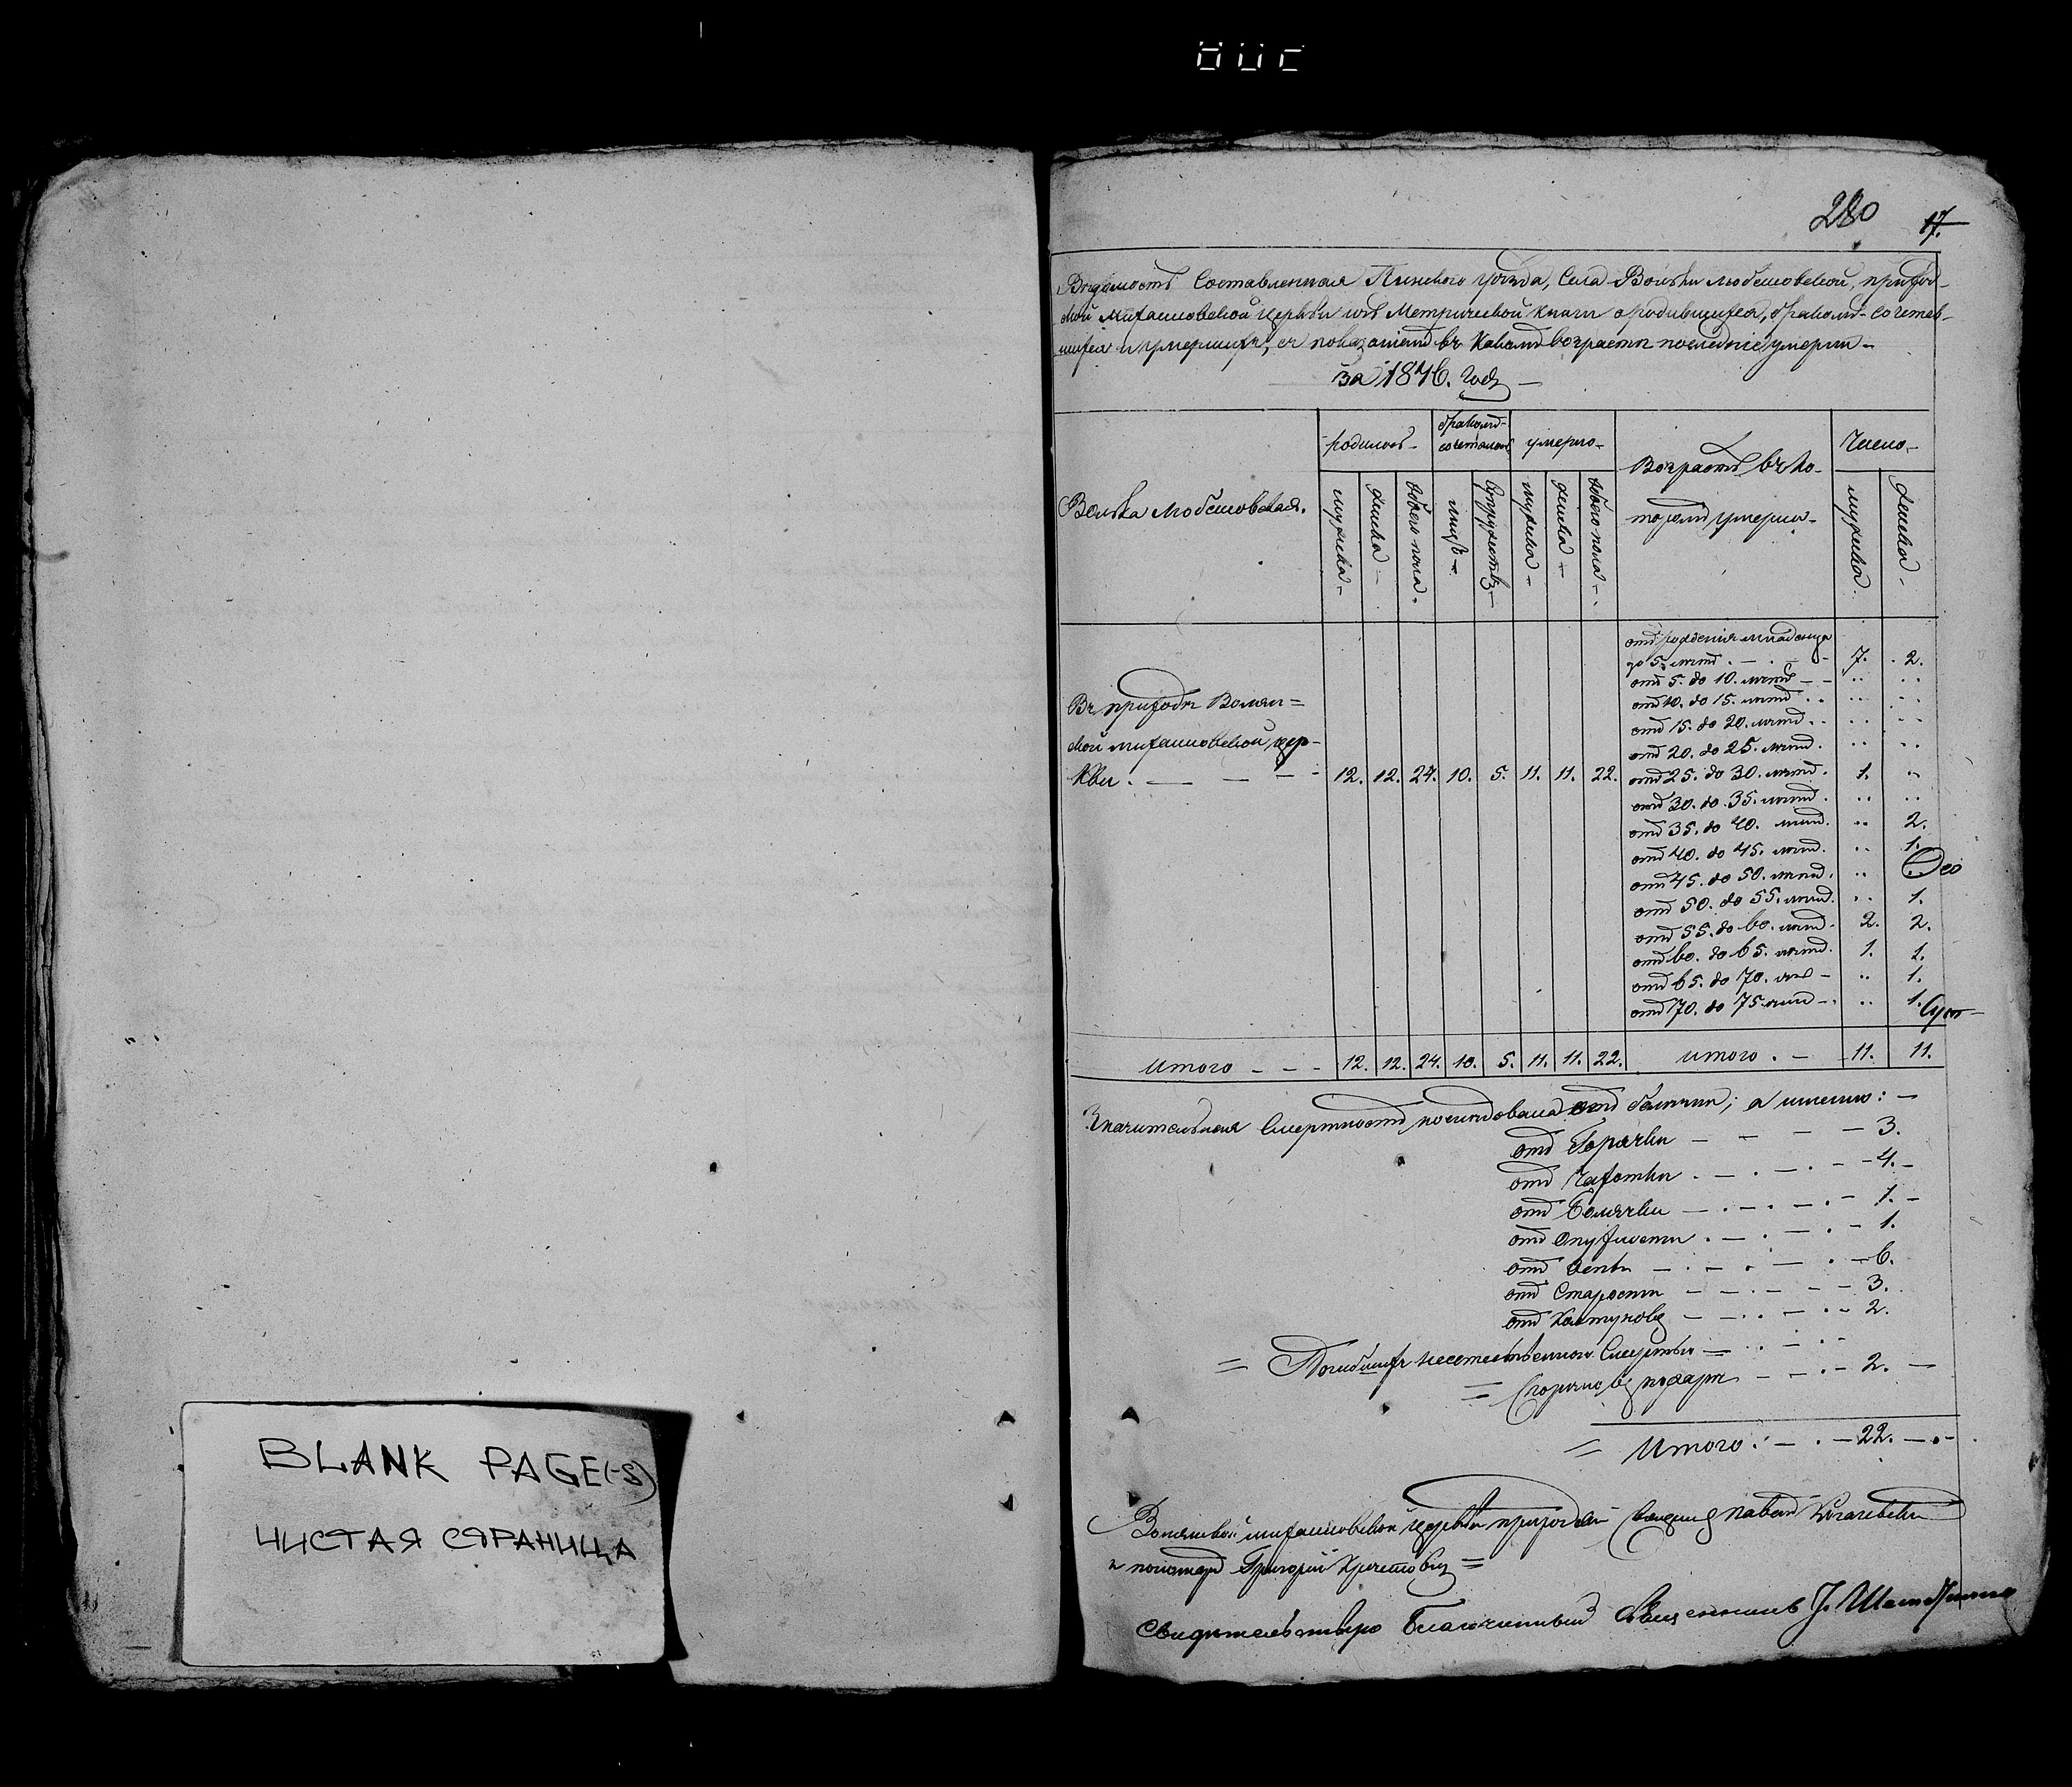 280 17.
Ведомость Составленная Пинского уезда, Села Вольки Любешовской, приход-
ской Михайловской церкви изъ Метрической книги о родившихся, бракомъ-сочетав-
шихся и умершихъ, съ показаніемъ въ какомъ возрасте последніе умерли-
за 1846. годъ
Волька Любешовская.
родилось-
бракомъ-
сочеталось
умерло-
Возрастъ въ ко-
торомъ умерли-
Число-
мужеска-
женска-
обоего пола.
лицъ-
Супружествъ-
мужеска-
женска-
обоего пола-
мужеска.
женска-
отъ рожденія младенца
до 5. летъ 7. 2.
отъ 5. до 10. летъ
отъ 10. до 15. летъ
отъ 15. до 20. летъ
отъ 20. до 25. летъ.
отъ 25. до 30. летъ. 1.
отъ 30. до 35. летъ.
отъ 35. до 40. летъ. 2.
отъ 40. до 45. летъ. 1.
отъ 45. до 50. летъ.
отъ 50. до 55. летъ. 1.
отъ 55. до 60. летъ. 2. 2.
отъ 60. до 65. летъ. 1. 1.
отъ 65. до 70. летъ 1.
отъ 70. до 75. летъ 1.
Въ приходе Волян=
ской Михайловской цер-
кви. 12. 12. 24. 10. 5. 11. 11. 22.
Итого - - - 12. 12. 24. 10. 5. 11. 11. 22. Итого . - 11. 11.
Значительная Смертность последовала отъ болезни; а именно: -
отъ Горячки 3.
отъ Чахотки 4.
отъ Болячки 1.
отъ Опухлости 1.
отъ 6.
отъ Старости 3.
отъ Колтуновъ 2.
= Погибшихъ неестественною Смертью
= Сгорело въ пожаре 2.
= Итого: 22.
Волянской Михайловской церкви приходскій Священ Павелъ
и пономарь Григорій
Свидетельствую Благочинный Священникъ
BLANK PAGE(-S)
ЧИСТАЯ СТРАНИЦА